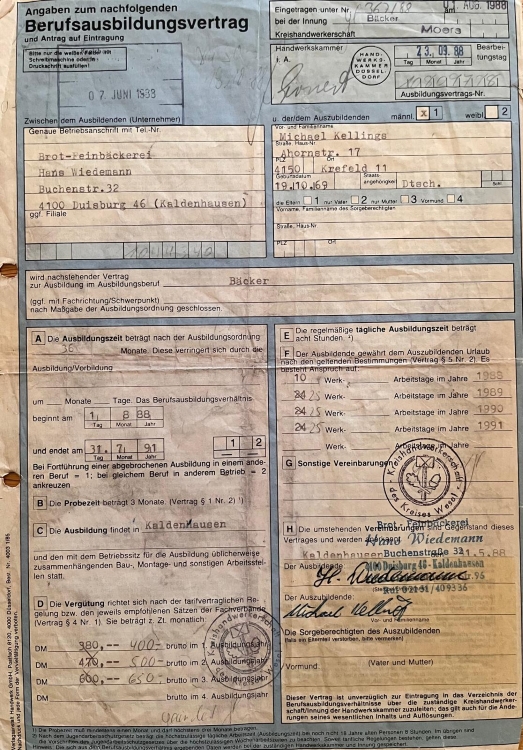 Angaben zum nachfolgenden
Berufsausbildungsvertrag
und Antrag auf Eintragung
Bitte nur die weißen Felder mit
Schreibmaschine oder in
Druckschrift ausfüllen!
07. JUNI 1988
Eingetragen unter Nr. 362/88 am AUG. 1988
bei der Innung Bäcker
Kreishandwerkerschaft Moers
Handwerkskammer
i. A.
HAND-
WERKS-
KAMMER
DÜSSEL-
DORF
23. 09. 88
Tag Monat Jahr
Bearbei-
tungstag
Ausbildungsvertrags-Nr.
Zwischen dem Ausbildenden (Unternehmer)
Genaue Betriebsanschrift mit Tel.-Nr.
Brot-Feinbäckerei
Hans Wiedemann
Buchenstr.32
4100 Duisburg 46 (Kaldenhausen)
ggf. Filiale
u. der/dem Auszubildenden männl. x 1 weibl. 2
Vor- und Familienname
Michael Kellings
Straße, Haus-Nr.
Ahornstr. 17
PLZ Ort
4150 Krefeld 11
Geburtsdatum
19.10.69
Staats-
angehörigkeit
Dtsch.
die Eltern 1 nur Vater 2 nur Mutter 3 Vormund 4
Vorname, Familienname des Sorgeberechtigten
Straße, Haus-Nr.
PLZ Ort
wird nachstehender Vertrag
zur Ausbildung im Ausbildungsberuf Bäcker
(ggf. mit Fachrichtung/Schwerpunkt)
nach Maßgabe der Ausbildungsordnung geschlossen.
A Die Ausbildungszeit beträgt nach der Ausbildungsordnung
36 Monate. Diese verringert sich durch die
Ausbildung/Vorbildung
um Monate Tage. Das Berufsausbildungsverhältnis
beginnt am 1. 8 88
Tag Monat Jahr
und endet am 31. 7. 91
Tag Monat Jahr
1 2
Bei Fortführung einer abgebrochenen Ausbildung in einem ande-
ren Beruf = 1; bei gleichem Beruf in anderem Betrieb = 2
ankreuzen
B Die Probezeit beträgt 3 Monate. (Vertrag § 1 Nr. 2) ¹)
C Die Ausbildung findet in Kaldenhausen
und den mit dem Betriebssitz für die Ausbildung üblicherweise
zusammenhängenden Bau-, Montage- und sonstigen Arbeitsstel-
len statt.
D Die Vergütung richtet sich nach der tarifvertraglichen Re-
gelung bzw. den jeweils empfohlenen Sätzen der Fachverbände
(Vertrag § 4 Nr. 1). Sie beträgt z. Zt. monatlich:
DM 380,-- 400.- brutto im 1. Ausbildungsjahr
DM 470,-- 500.- brutto im 2. Ausbildungsjahr
DM 600,-- 650.- brutto im 3. Ausbildungsjahr
DM brutto im 4. Ausbildungsjahr
E Die regelmäßige tägliche Ausbildungszeit beträgt
acht Stunden. ²)
F Der Ausbildende gewährt dem Auszubildenden Urlaub
nach den geltenden Bestimmungen (Vertrag § 5 Nr. 2). Es
besteht Anspruch auf:
10 Werk- Arbeitstage im Jahre 1988
24 25 Werk- Arbeitstage im Jahre 1989
24 25 Werk- Arbeitstage im Jahre 1990
24 25 Werk- Arbeitstage im Jahre 1991
Werk- Arbeitstage im Jahre
G Sonstige Vereinbarungen
Kreishandwerkerschaft
des Kreises Wesel
H Die umstehenden Vereinbarungen sind Gegenstand dieses
Vertrages und werden anerkannt
Brot-Feinbäckerei
Hans Wiedemann
Kaldenhausen
Buchenstraße 32
4100 Duisburg 46 - Kaldenhausen
Ruf 02151/409336
Der Ausbildende:
H. Wiedemann
Der Auszubildende:
Michael Kellings
Vor- und Familienname
Die Sorgeberechtigten des Auszubildenden
(Falls ein Elternteil verstorben, bitte vermerken)
Vormund: (Vater und Mutter)
Dieser Vertrag ist unverzüglich zur Eintragung in das Verzeichnis der
Berufsausbildungsverhältnisse über die zuständige Kreishandwerker-
schaft/Innung der Handwerkskammer zuzuleiten; das gilt auch für die Ände-
rungen seines wesentlichen Inhalts und Auflösungen.